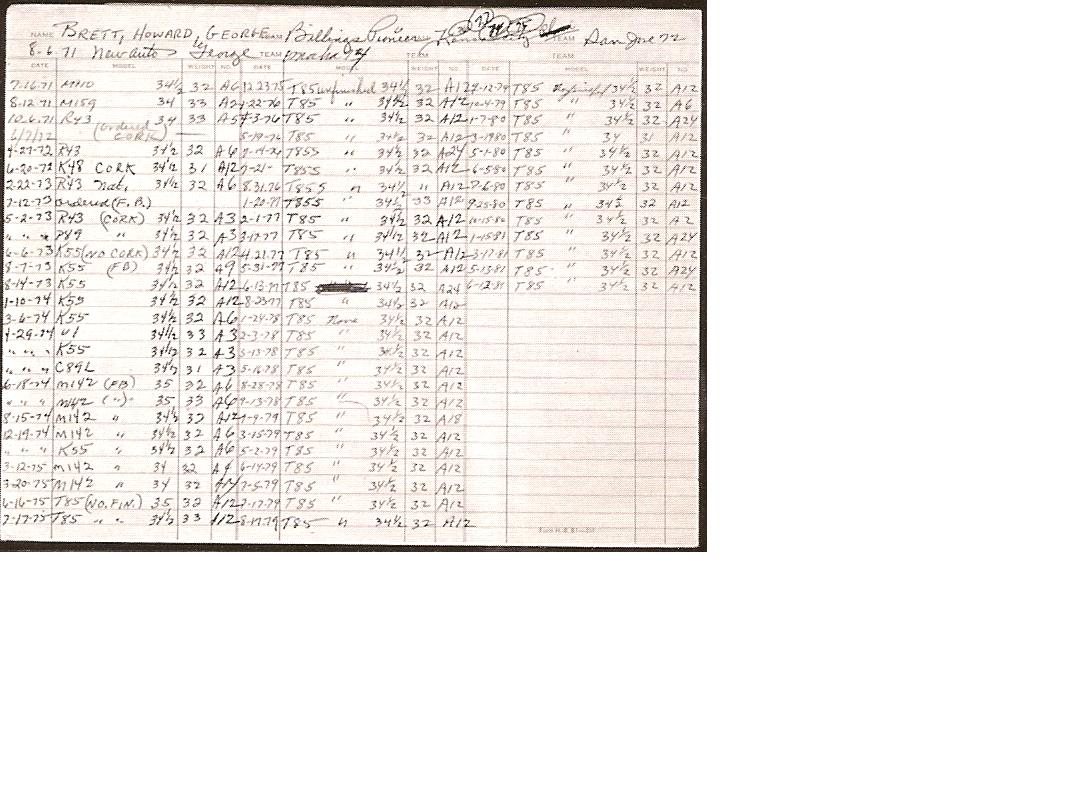 NAME BRETT, HOWARD, GEORGE TEAM Billings Pioneer Kansas City TEAM San Jose 72
8-6-71 New auto George TEAM Omaha 74 TEAM TEAM
DATE MODEL WEIGHT NO. DATE MODEL WEIGHT NO. DATE MODEL WEIGHT NO.
7-16-71 M110 34½ 32 A6 12-23-75 T85 unfinished 34½ 32 A12 9-12-79 T85 34½ 32 A12
8-12-71 M159 34 33 A2 4-22-76 T85 " 34½ 32 A12 10-4-79 T85 " 34½ 32 A6
10-6-71 R43 34 33 A5 4-3-76 T85 " 34½ 32 A12 1-7-80 T85 " 34½ 32 A24
(ordered CORK) 5-19-76 T85 " 34½ 32 A12 3-1980 T85 " 34 31 A12
4-27-72 R43 34½ 32 A6 T85S " 34½ 32 A24 5-1-80 T85 " 34½ 32 A12
6-20-72 K48 CORK 34½ 31 A12 7-21- T85S " 34½ 32 A12 6-5-80 T85 " 34½ 32 A12
2-22-73 R43 Nat. 34½ 32 A6 8-31-76 T85S " 34½ " A12 7-6-80 T85 " 34½ 32 A12
7-12-73 ordered (F.B.) 1-20-77 T85S " 34½ 33 A12 9-25-80 T85 " 34½ 32 A12
5-2-73 R43 (CORK) 34½ 32 A3 2-1-77 T85 " 34½ 32 A12 10-15-80 T85 " 34½ 32 A2
" " " P89 " 34½ 32 A3 3-17-77 T85 " 34½ 32 A12 1-15-81 T85 " 34½ 32 A24
6-6-73 K55 (NO CORK) 34½ 32 A12 4-21-77 T85 " 34½ 32 A12 3-17-81 T85 " 34½ 32 A12
8-7-73 K55 (FB) 34½ 32 A9 5-31-77 T85 " 34½ 32 A12 5-13-81 T85 " 34½ 32 A24
8-14-73 K55 34½ 32 A12 6-13-77 T85 34½ 32 A24 6-12-81 T85 " 34½ 32 A12
1-10-74 K55 34½ 32 A12 8-23-77 T85 " 34½ 32 A12
3-6-74 K55 34½ 32 A6 1-24-78 T85 None 34½ 32 A12
4-29-74 U1 34½ 33 A3 2-3-78 T85 " 34½ 32 A12
" " " K55 34½ 32 A3 3-13-78 T85 " 34½ 32 A12
" " " C89L 34½ 31 A3 5-16-78 T85 " 34½ 32 A12
6-18-74 M142 (FB) 35 32 A6 8-28-78 T85 " 34½ 32 A12
" " " M142 (") 35 33 A6 9-13-78 T85 " 34½ 32 A12
8-15-74 M142 " 34½ 32 A12 T85 " 34½ 32 A18
12-19-74 M142 " 34½ 32 A6 3-15-79 T85 " 34½ 32 A12
" " " K55 " 34½ 32 A6 5-2-79 T85 " 34½ 32 A12
3-12-75 M142 " 34 32 6-14-79 T85 " 34½ 32 A12
3-20-75 M142 " 34 32 7-5-79 T85 " 34½ 32 A12
6-16-75 T85 (NO. FIN.) 35 32 A12 7-17-79 T85 " 34½ 32 A12
7-17-75 T85 " " 34½ 33 A12 8-17-79 T85 " 34½ 32 A12